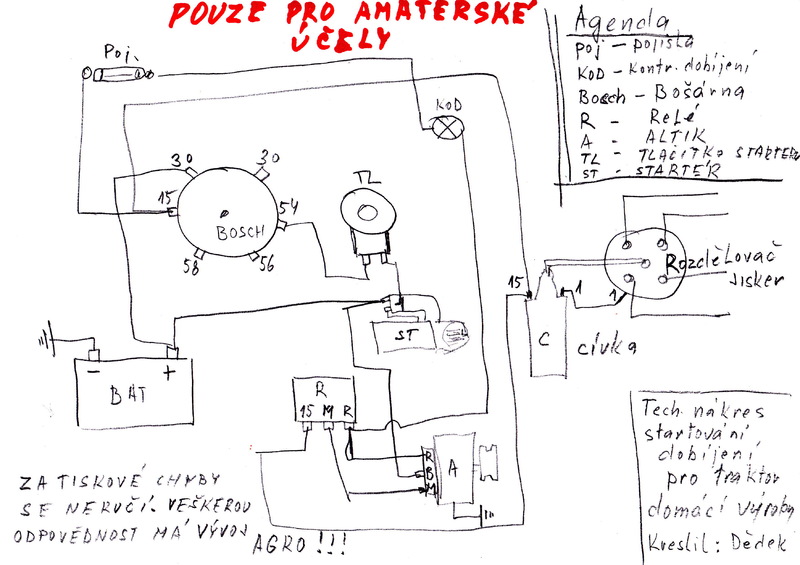 POUZE PRO AMATERSKÉ
ÚČELY
Agenda
Poj – pojistka
KOD – Kontr. dobíjení
Bosch – Bošárna
R – Relé
A – ALTIK
TL – TLAČÍTKO STARTERU
ST – STARTÉR
Poj.
KOD
30
30
TL
15
54
BOSCH
58
56
Rozdělovač
Jisker
15
1
1
ST
C
cívka
- +
BAT
R
15 M R
R
B
M
A
Tech. nákres
startování
dobíjení
pro traktor
domácí výroby
Kreslil: Dědek
ZA TISKOVÉ CHYBY
SE NERUČÍ. VEŠKEROU
ODPOVĚDNOST MÁ VÝVOJ
AGRO!!!